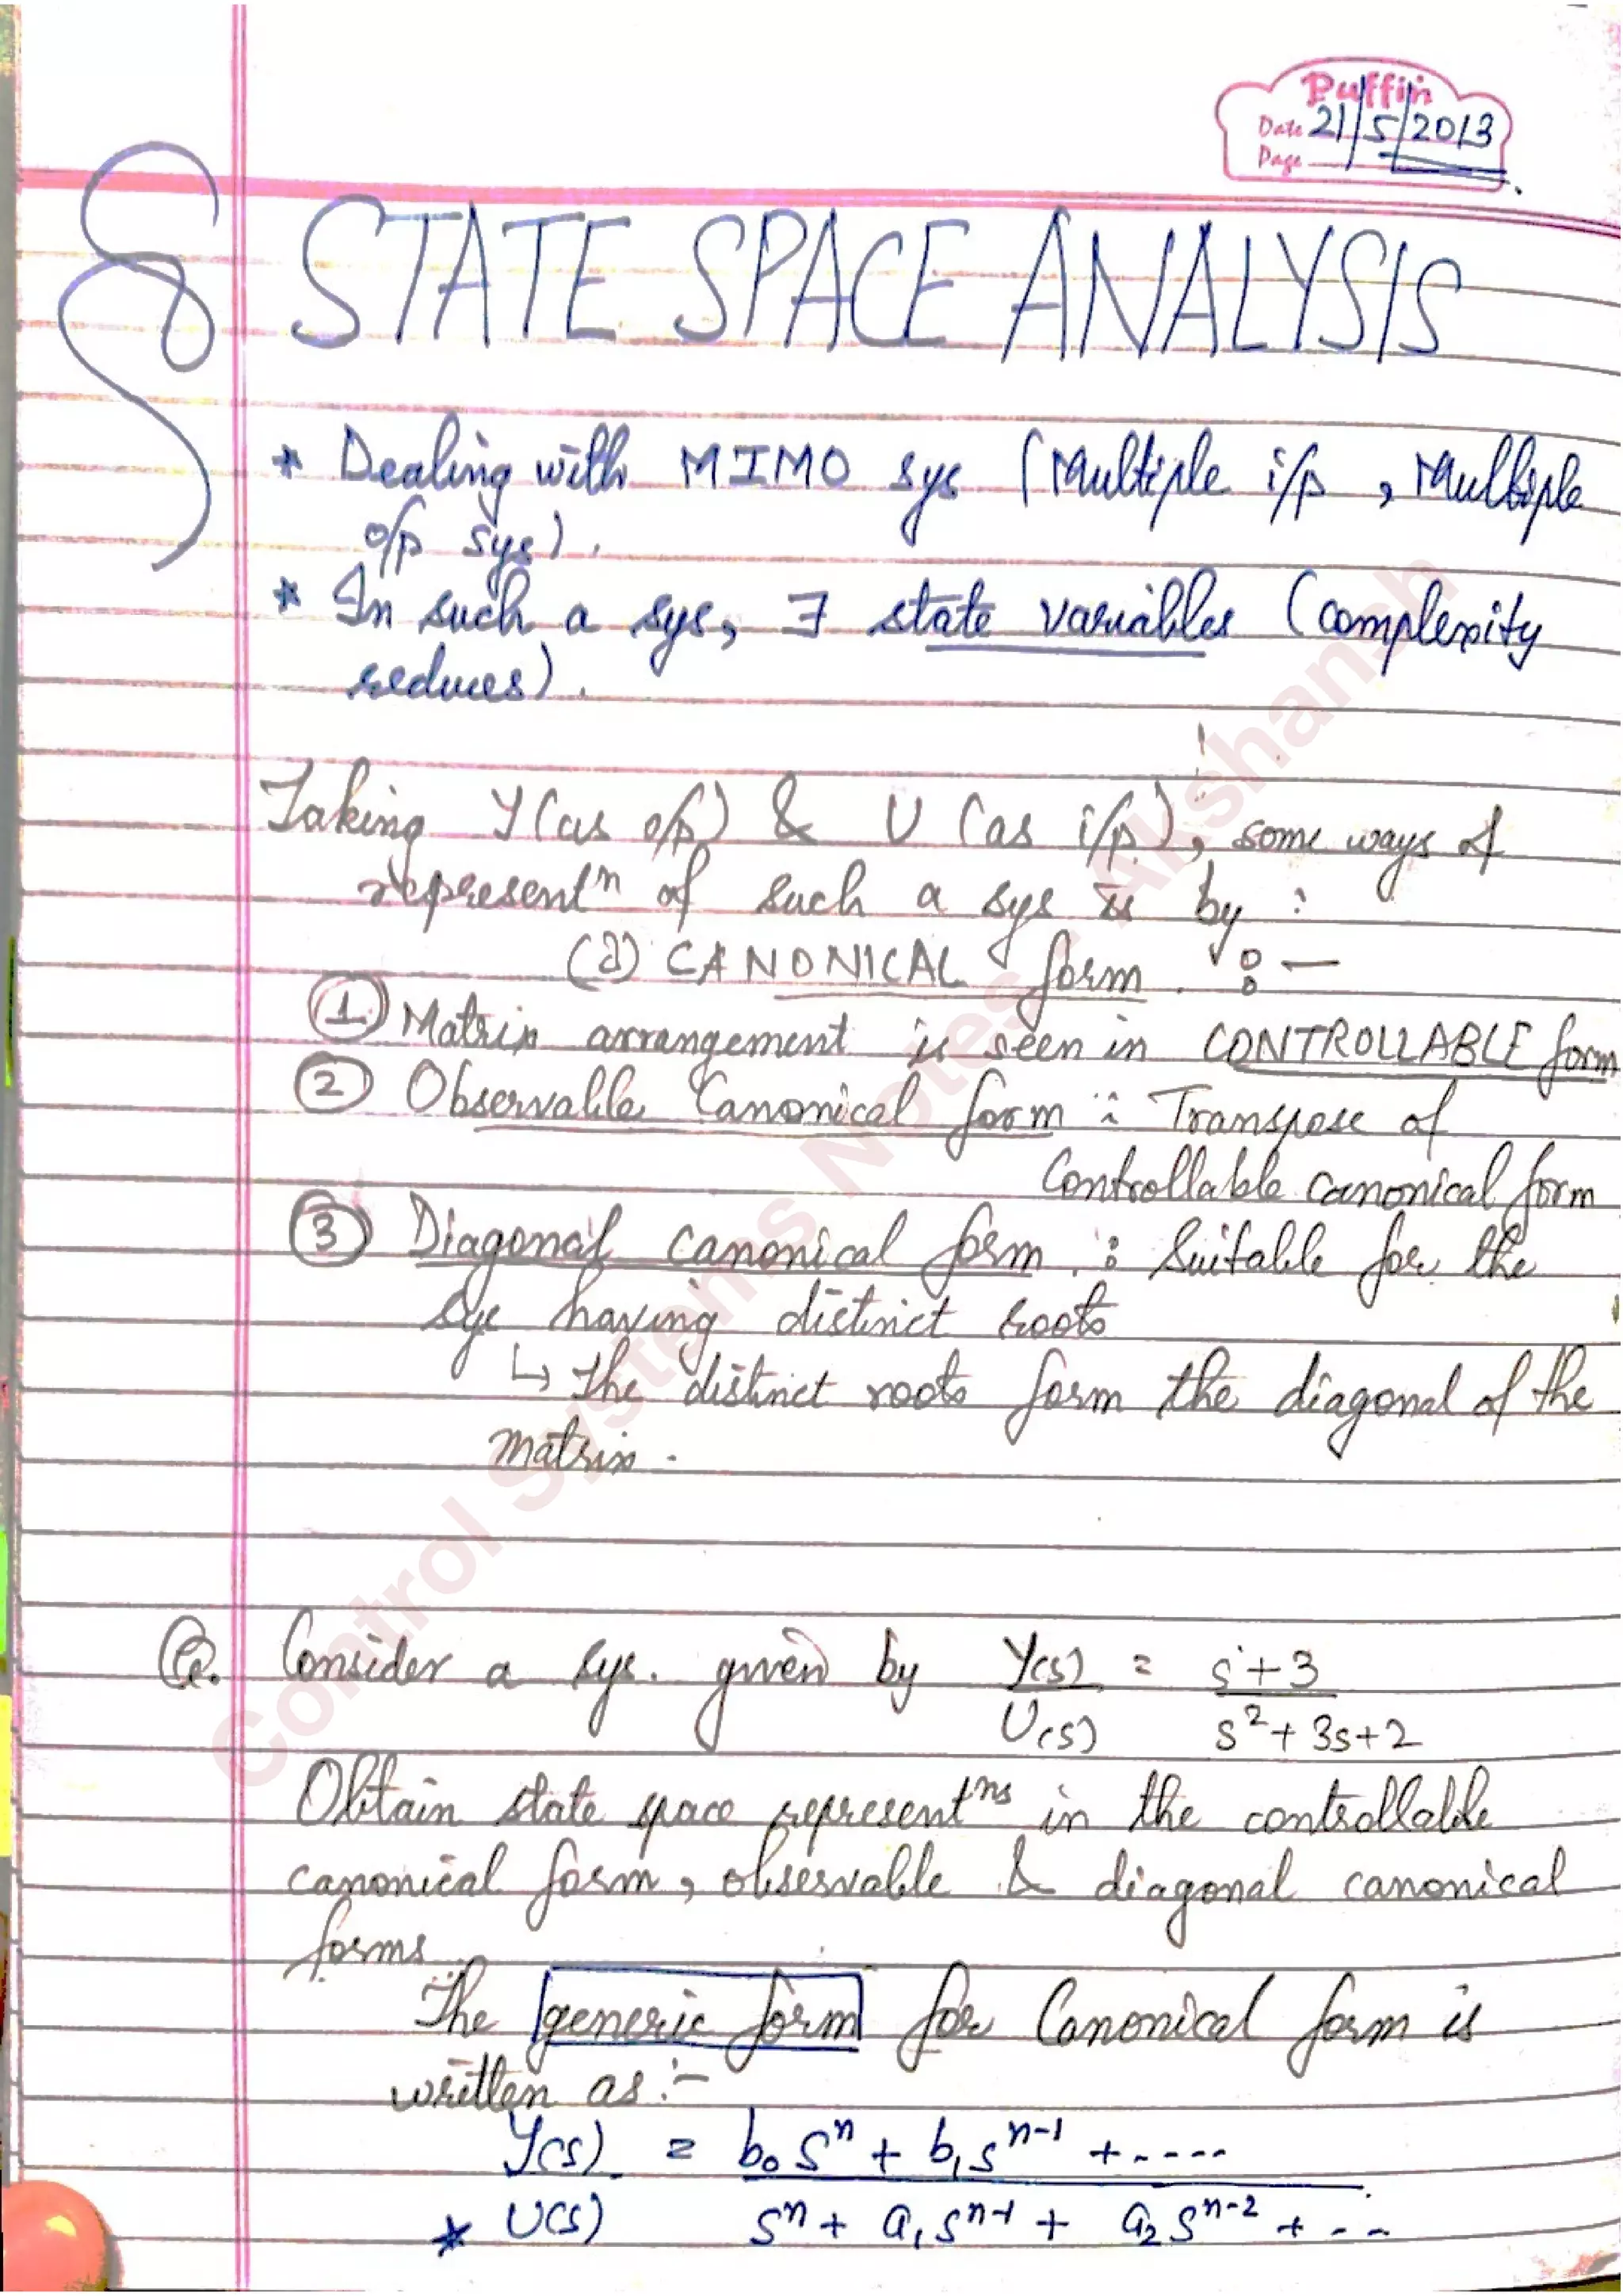 Puffin
Date 21/5/2013
Page
STATE SPACE ANALYSIS
* Dealing with MIMO sys (Multiple i/p, Multiple
o/p sys).
* In such a sys, ∃ state variables (complexity
reduces).
Taking Y (as o/p) & U (as i/p), some ways of
representⁿ of such a sys is by :
CANONICAL form. :-
① Matrix arrangement is seen in CONTROLLABLE form
② Observable Canonical form : Transpose of
Controllable canonical form
③ Diagonal canonical form. : Suitable for the
sys having distinct roots
↳ The distinct roots form the diagonal of the
matrix.
Q. Consider a sys. given by Y(s)/U(s) = (s+3)/(s²+3s+2)
Obtain state space representⁿˢ in the controllable
canonical form, observable & diagonal canonical
forms.
The generic form for Canonical form is
written as :-
Y(s) = b₀sⁿ + b₁sⁿ⁻¹ + .....
* U(s) sⁿ + a₁sⁿ⁻¹ + a₂sⁿ⁻² + ...
Control Systems Notes - Akshansh